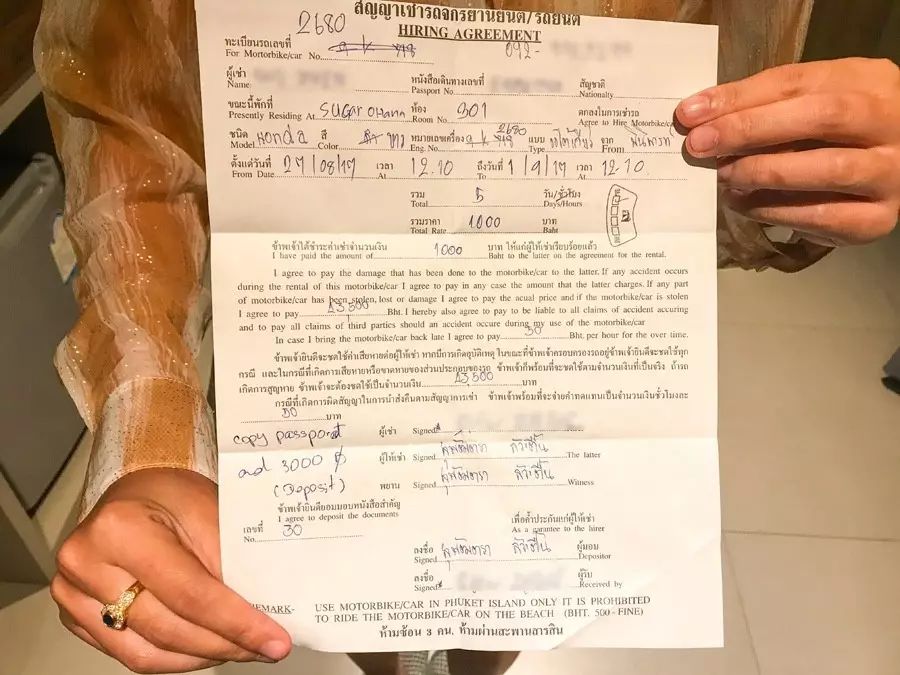 สัญญาเช่ารถจักรยานยนต์/รถยนต์
HIRING AGREEMENT
2680
092-
ทะเบียนรถเลขที่
For Mortorbike/car No.
ผู้เช่า หนังสือเดินทางเลขที่ สัญชาติ
Name: Passport No. Nationalty
ขณะนี้พักที่ ห้อง ตกลงในการเช่ารถ
Presently Residing At Sugar Ohana Room No. 301 Agree to Hire Motorbike/c
ชนิด สี หมายเลขเครื่อง 2680 แบบ จาก
Model Honda Color ขาว Eng. No. Type From
ตั้งแต่วันที่ เวลา ถึงวันที่ เวลา
From Date 27/08/17 At 12.10 To 1/9/17 At 12.10
รวม 5 วัน/ชั่วโมง
Total Days/Hours
รวมราคา 1000 บาท
Total Rate Baht
ข้าพเจ้าได้ชำระค่าเช่าจำนวนเงิน 1000 บาท ให้แก่ผู้ให้เช่าเรียบร้อยแล้ว
I have paid the amount of Baht to the latter on the agreement for the rental.
I agree to pay the damage that has been done to the motorbike/car to the latter. If any accident occurs
during the rental of this motorbike/car I agree to pay in any case the amount that the latter charges. If any part
of motorbike/car has been stolen, lost or damage I agree to pay the actual price and if the motorbike/car is stolen
I agree to pay 43,500 Bht. I hereby also agree to pay to be liable to all claims of accident accuring
and to pay all claims of third parties should an accident occure during my use of the motorbike/car
In case I bring the motorbike/car back late I agree to pay 50 Bht. per hour for the over time.
ข้าพเจ้ายินดีจะชดใช้ค่าเสียหายต่อผู้ให้เช่า หากมีการเกิดอุบัติเหตุ ในขณะที่ข้าพเจ้าครอบครองรถอยู่ข้าพเจ้ายินดีจะชดใช้ทุก
กรณี และในกรณีที่เกิดการเสียหายหรือขาดหายของส่วนประกอบของรถ ข้าพเจ้าก็พร้อมที่จะชดใช้ตามจำนวนเงินที่เป็นจริง ถ้ารถ
เกิดการสูญหาย ข้าพเจ้าจะต้องชดใช้เป็นจำนวนเงิน 43,500 บาท
กรณีที่เกิดการผิดสัญญาในการนำส่งคืนตามสัญญาการเช่า ข้าพเจ้าพร้อมที่จะจ่ายค่าทดแทนเป็นจำนวนเงินชั่วโมงละ
50 บาท
copy passport ผู้เช่า Signed
ad 3000 ฿ ผู้ให้เช่า Signed The latter
(Deposit) พยาน Signed Witness
ข้าพเจ้ายินดียอมมอบหนังสือสำคัญ
I agree to deposit the documents
เลขที่ เพื่อค้ำประกันแก่ผู้ให้เช่า
No. 30 As a garantee to the hirer
ลงชื่อ ผู้มอบ
Signed Depositor
ลงชื่อ ผู้รับ
Signed Received by
EMARK- USE MOTORBIKE/CAR IN PHUKET ISLAND ONLY IT IS PROHIBITED
TO RIDE THE MOTORBIKE/CAR ON THE BEACH (BHT. 500-FINE)
ห้ามซ้อน 3 คน, ห้ามผ่านสะพานสารสิน